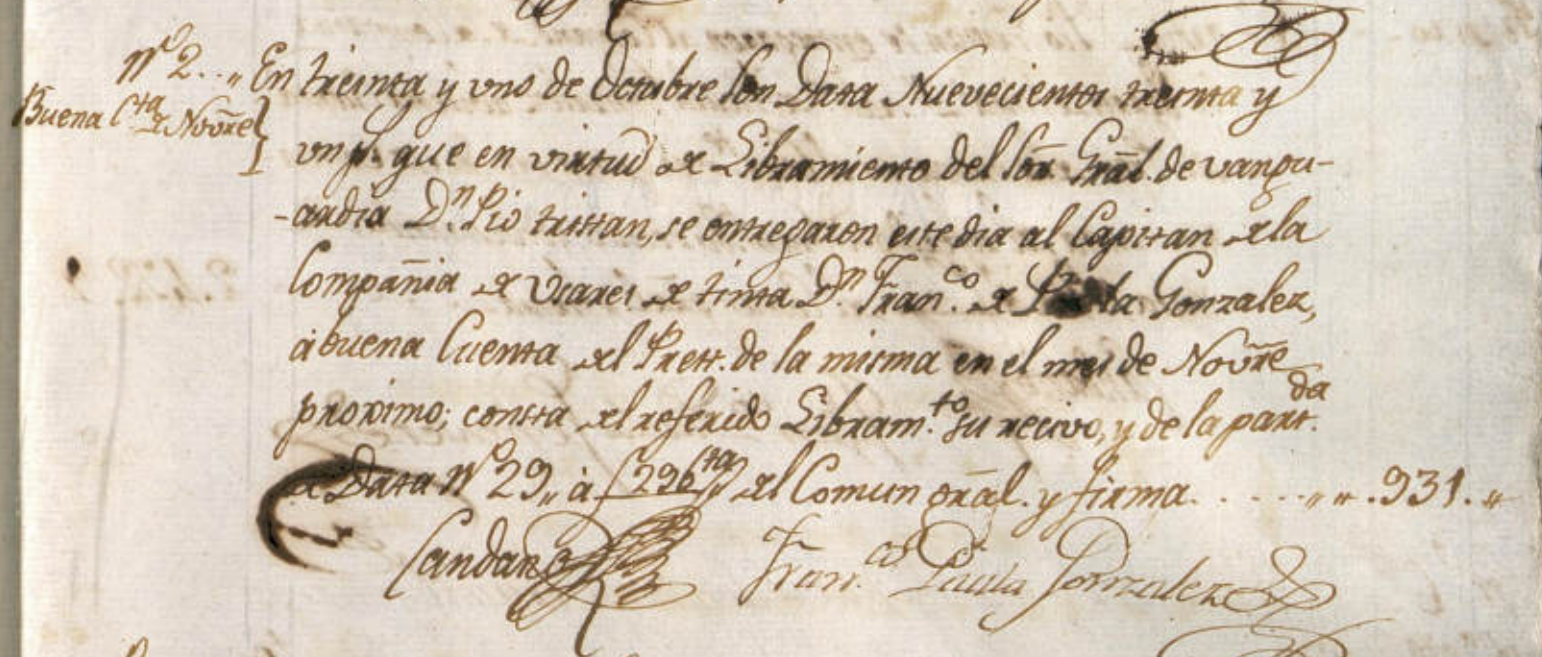 Nº 2. . „ En treinta y uno de Octubre son Data Nuevecientos treinta y
Buena Cta. de Novre.
un ps. que en virtud de Libramiento del Sor. Gral. de vangu-
-ardia Dn. Pio tristan, se entregaron este dia al Capitan de la
Compañia de Usares de tinta Dn. Franco. de Paula Gonzalez,
á buena Cuenta del Prest. de la misma en el mes de Novre
proximo; consta del referido Libramto. su recivo, y de la partda.
de Data Nº 29„ á f 296 del Comun gral. y firma. . . . . . „ „ . 931. „
Candano Franco. Paula Gonzalez